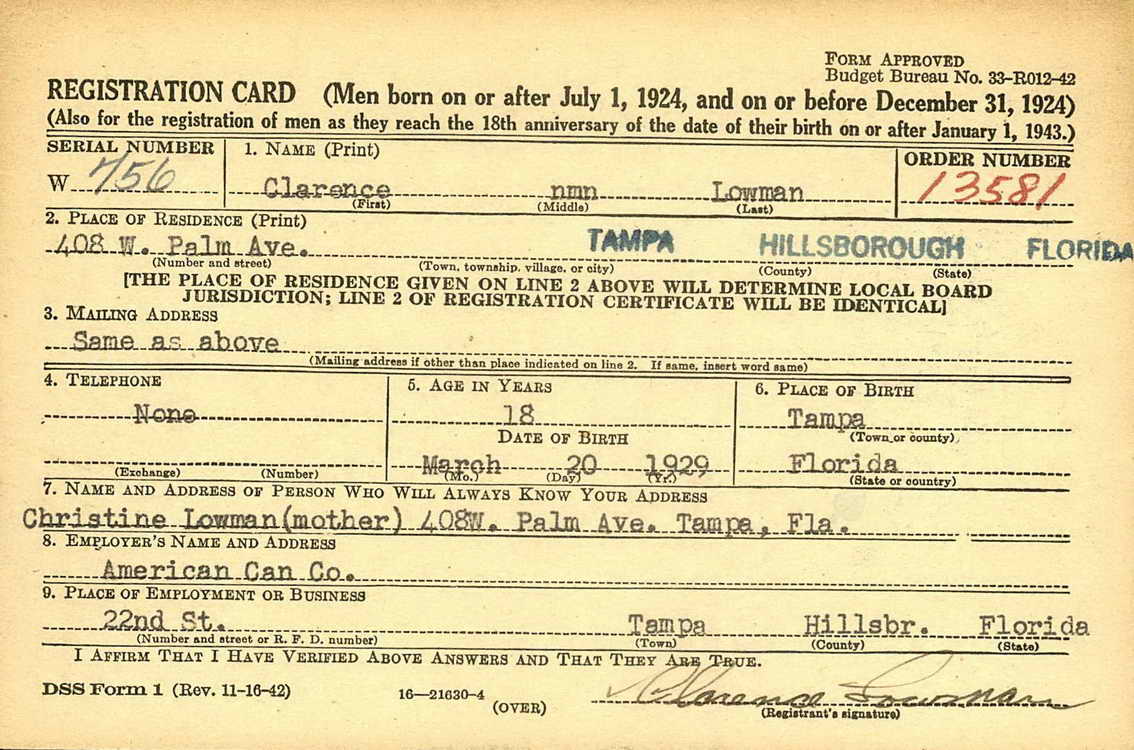 FORM APPROVED
Budget Bureau No. 33-R012-42
REGISTRATION CARD (Men born on or after July 1, 1924, and on or before December 31, 1924)
(Also for the registration of men as they reach the 18th anniversary of the date of their birth on or after January 1, 1943.)
SERIAL NUMBER 1. NAME (Print) ORDER NUMBER
W 756 Clarence nmn Lowman 13581
(First) (Middle) (Last)
2. PLACE OF RESIDENCE (Print)
408 W. Palm Ave. TAMPA HILLSBOROUGH FLORIDA
(Number and street) (Town, township, village, or city) (County) (State)
[THE PLACE OF RESIDENCE GIVEN ON LINE 2 ABOVE WILL DETERMINE LOCAL BOARD
JURISDICTION; LINE 2 OF REGISTRATION CERTIFICATE WILL BE IDENTICAL]
3. MAILING ADDRESS
Same as above
(Mailing address if other than place indicated on line 2. If same, insert word same)
4. TELEPHONE 5. AGE IN YEARS 6. PLACE OF BIRTH
None 18 Tampa
DATE OF BIRTH (Town or county)
March 20 1929 Florida
(Exchange) (Number) (Mo.) (Day) (Yr.) (State or country)
7. NAME AND ADDRESS OF PERSON WHO WILL ALWAYS KNOW YOUR ADDRESS
Christine Lowman(mother) 408W. Palm Ave. Tampa, Fla.
8. EMPLOYER'S NAME AND ADDRESS
American Can Co.
9. PLACE OF EMPLOYMENT OR BUSINESS
22nd St. Tampa Hillsbr. Florida
(Number and street or R. F. D. number) (Town) (County) (State)
I AFFIRM THAT I HAVE VERIFIED ABOVE ANSWERS AND THAT THEY ARE TRUE.
DSS Form 1 (Rev. 11-16-42) 16—21630-4 Clarence Lowman
(OVER) (Registrant's signature)